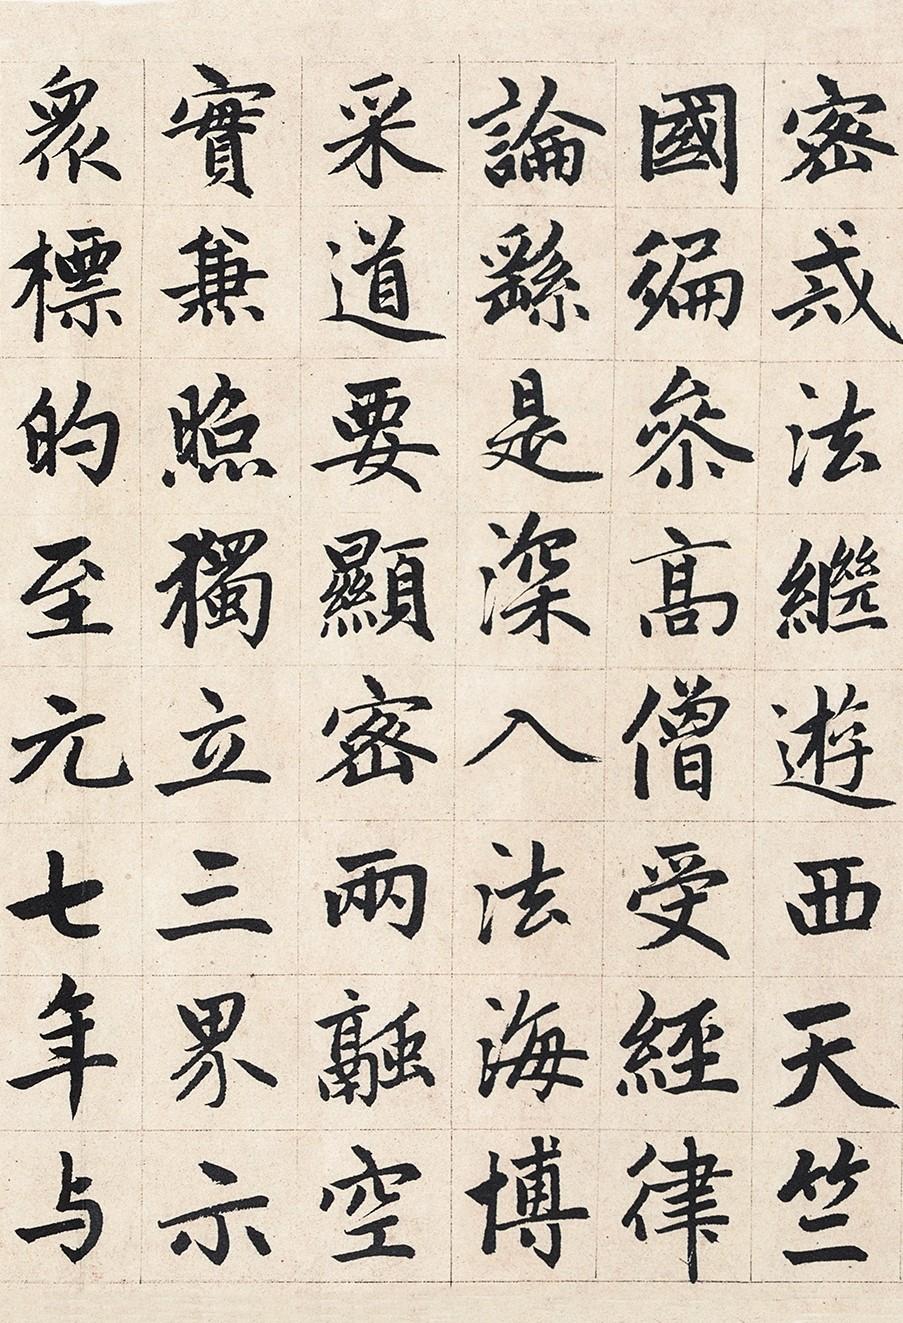 密戒法繼遊西天竺
國徧參高僧受經律
論繇是深入法海博
采道要顯密兩融空
實兼照獨立三界示
衆標的至元七年与